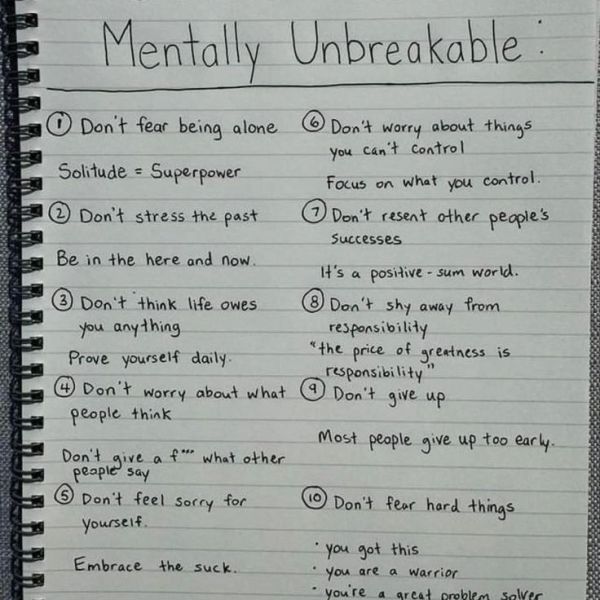 Mentally Unbreakable:
① Don't fear being alone
Solitude = Superpower
② Don't stress the past
Be in the here and now.
③ Don't think life owes
you anything
Prove yourself daily.
④ Don't worry about what
people think
Don't give a f*** what other
people say
⑤ Don't feel sorry for
yourself.
Embrace the suck.
⑥ Don't worry about things
you can't control
Focus on what you control.
⑦ Don't resent other people's
successes
It's a positive-sum world.
⑧ Don't shy away from
responsibility
"the price of greatness is
responsibility"
⑨ Don't give up
Most people give up too early.
⑩ Don't fear hard things
· you got this
· you are a warrior
· you're a great problem solver